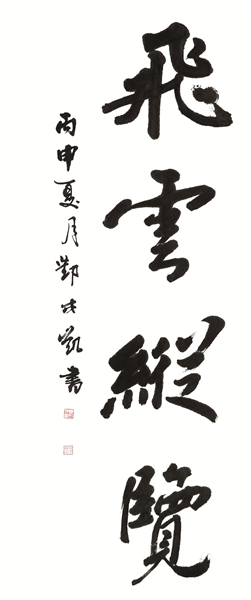 飛雲縱覽
丙申夏月凱書